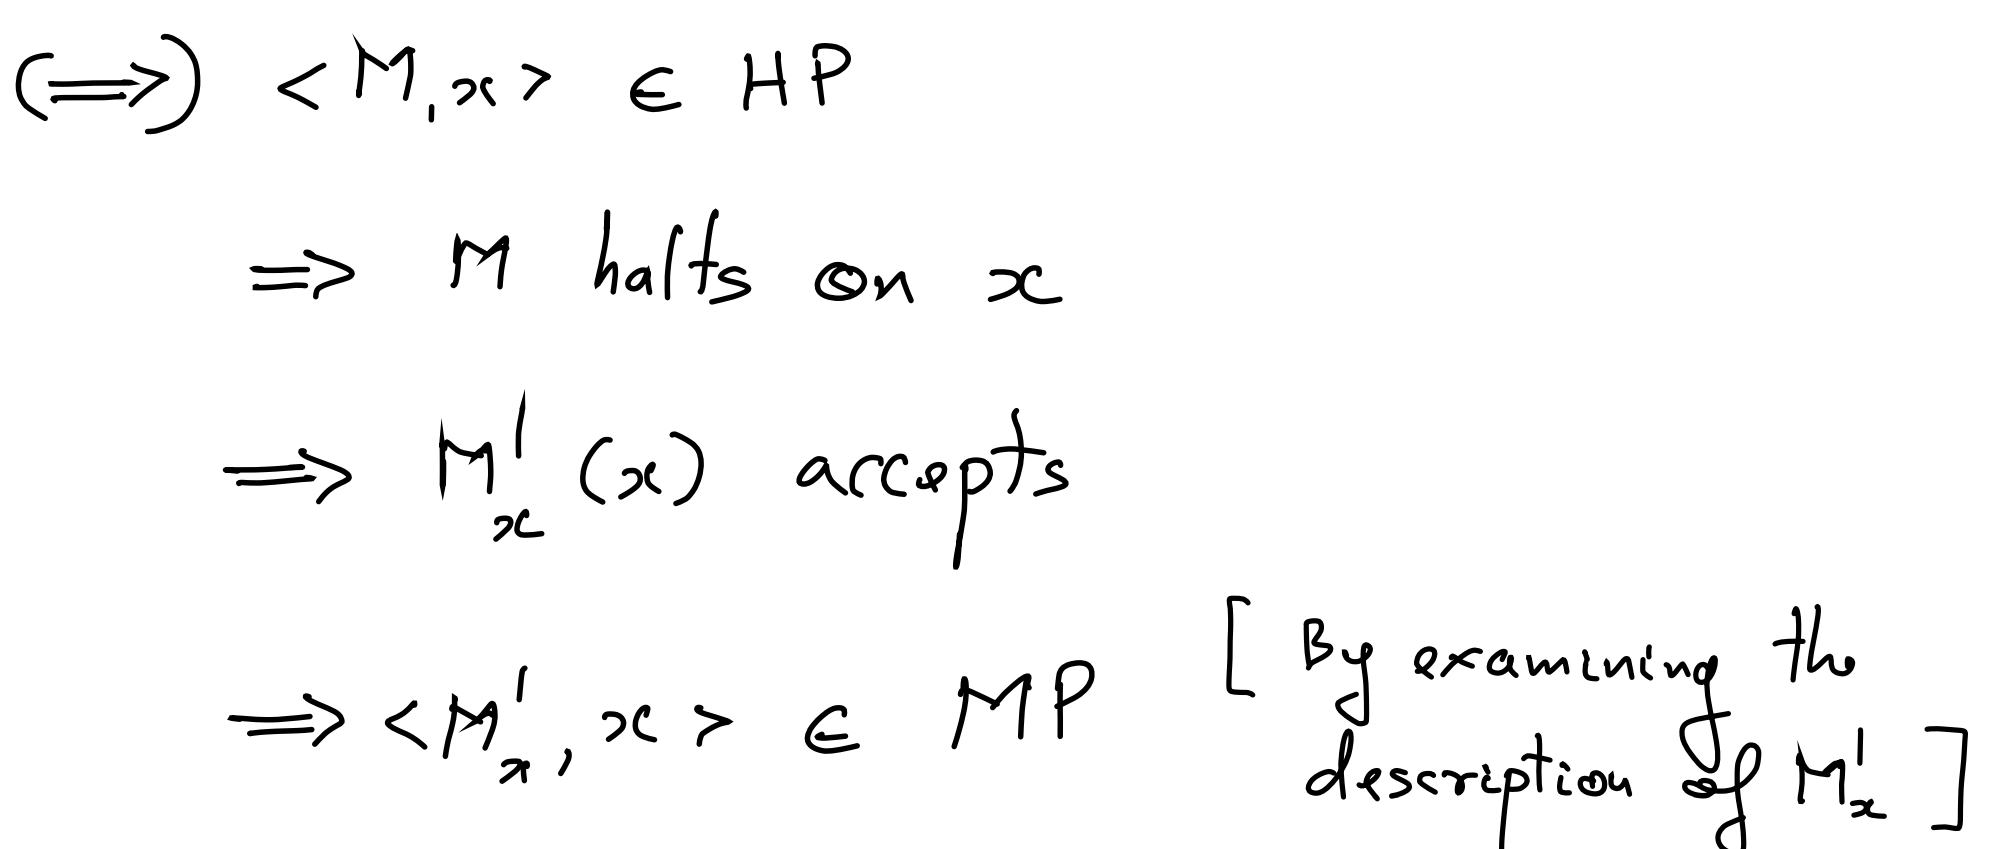 (⟹) <M, x> ∈ HP
⟹ M halts on x
⟹ M'ₓ (x) accepts
⟹ <M'ₓ, x> ∈ MP [By examining the
description of M'ₓ]